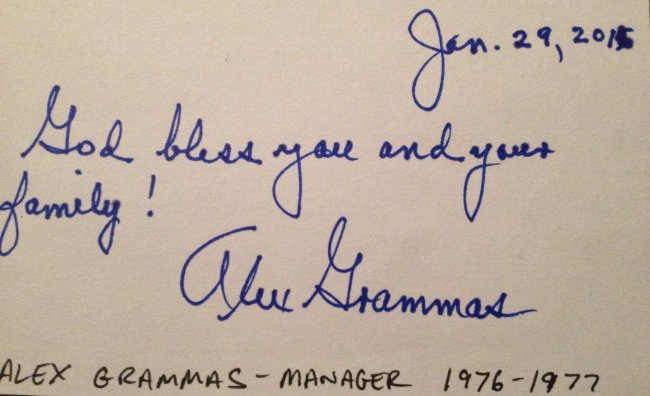 Jan. 29, 2015
God bless you and your
family!
Alex Grammas
ALEX GRAMMAS - MANAGER 1976-1977